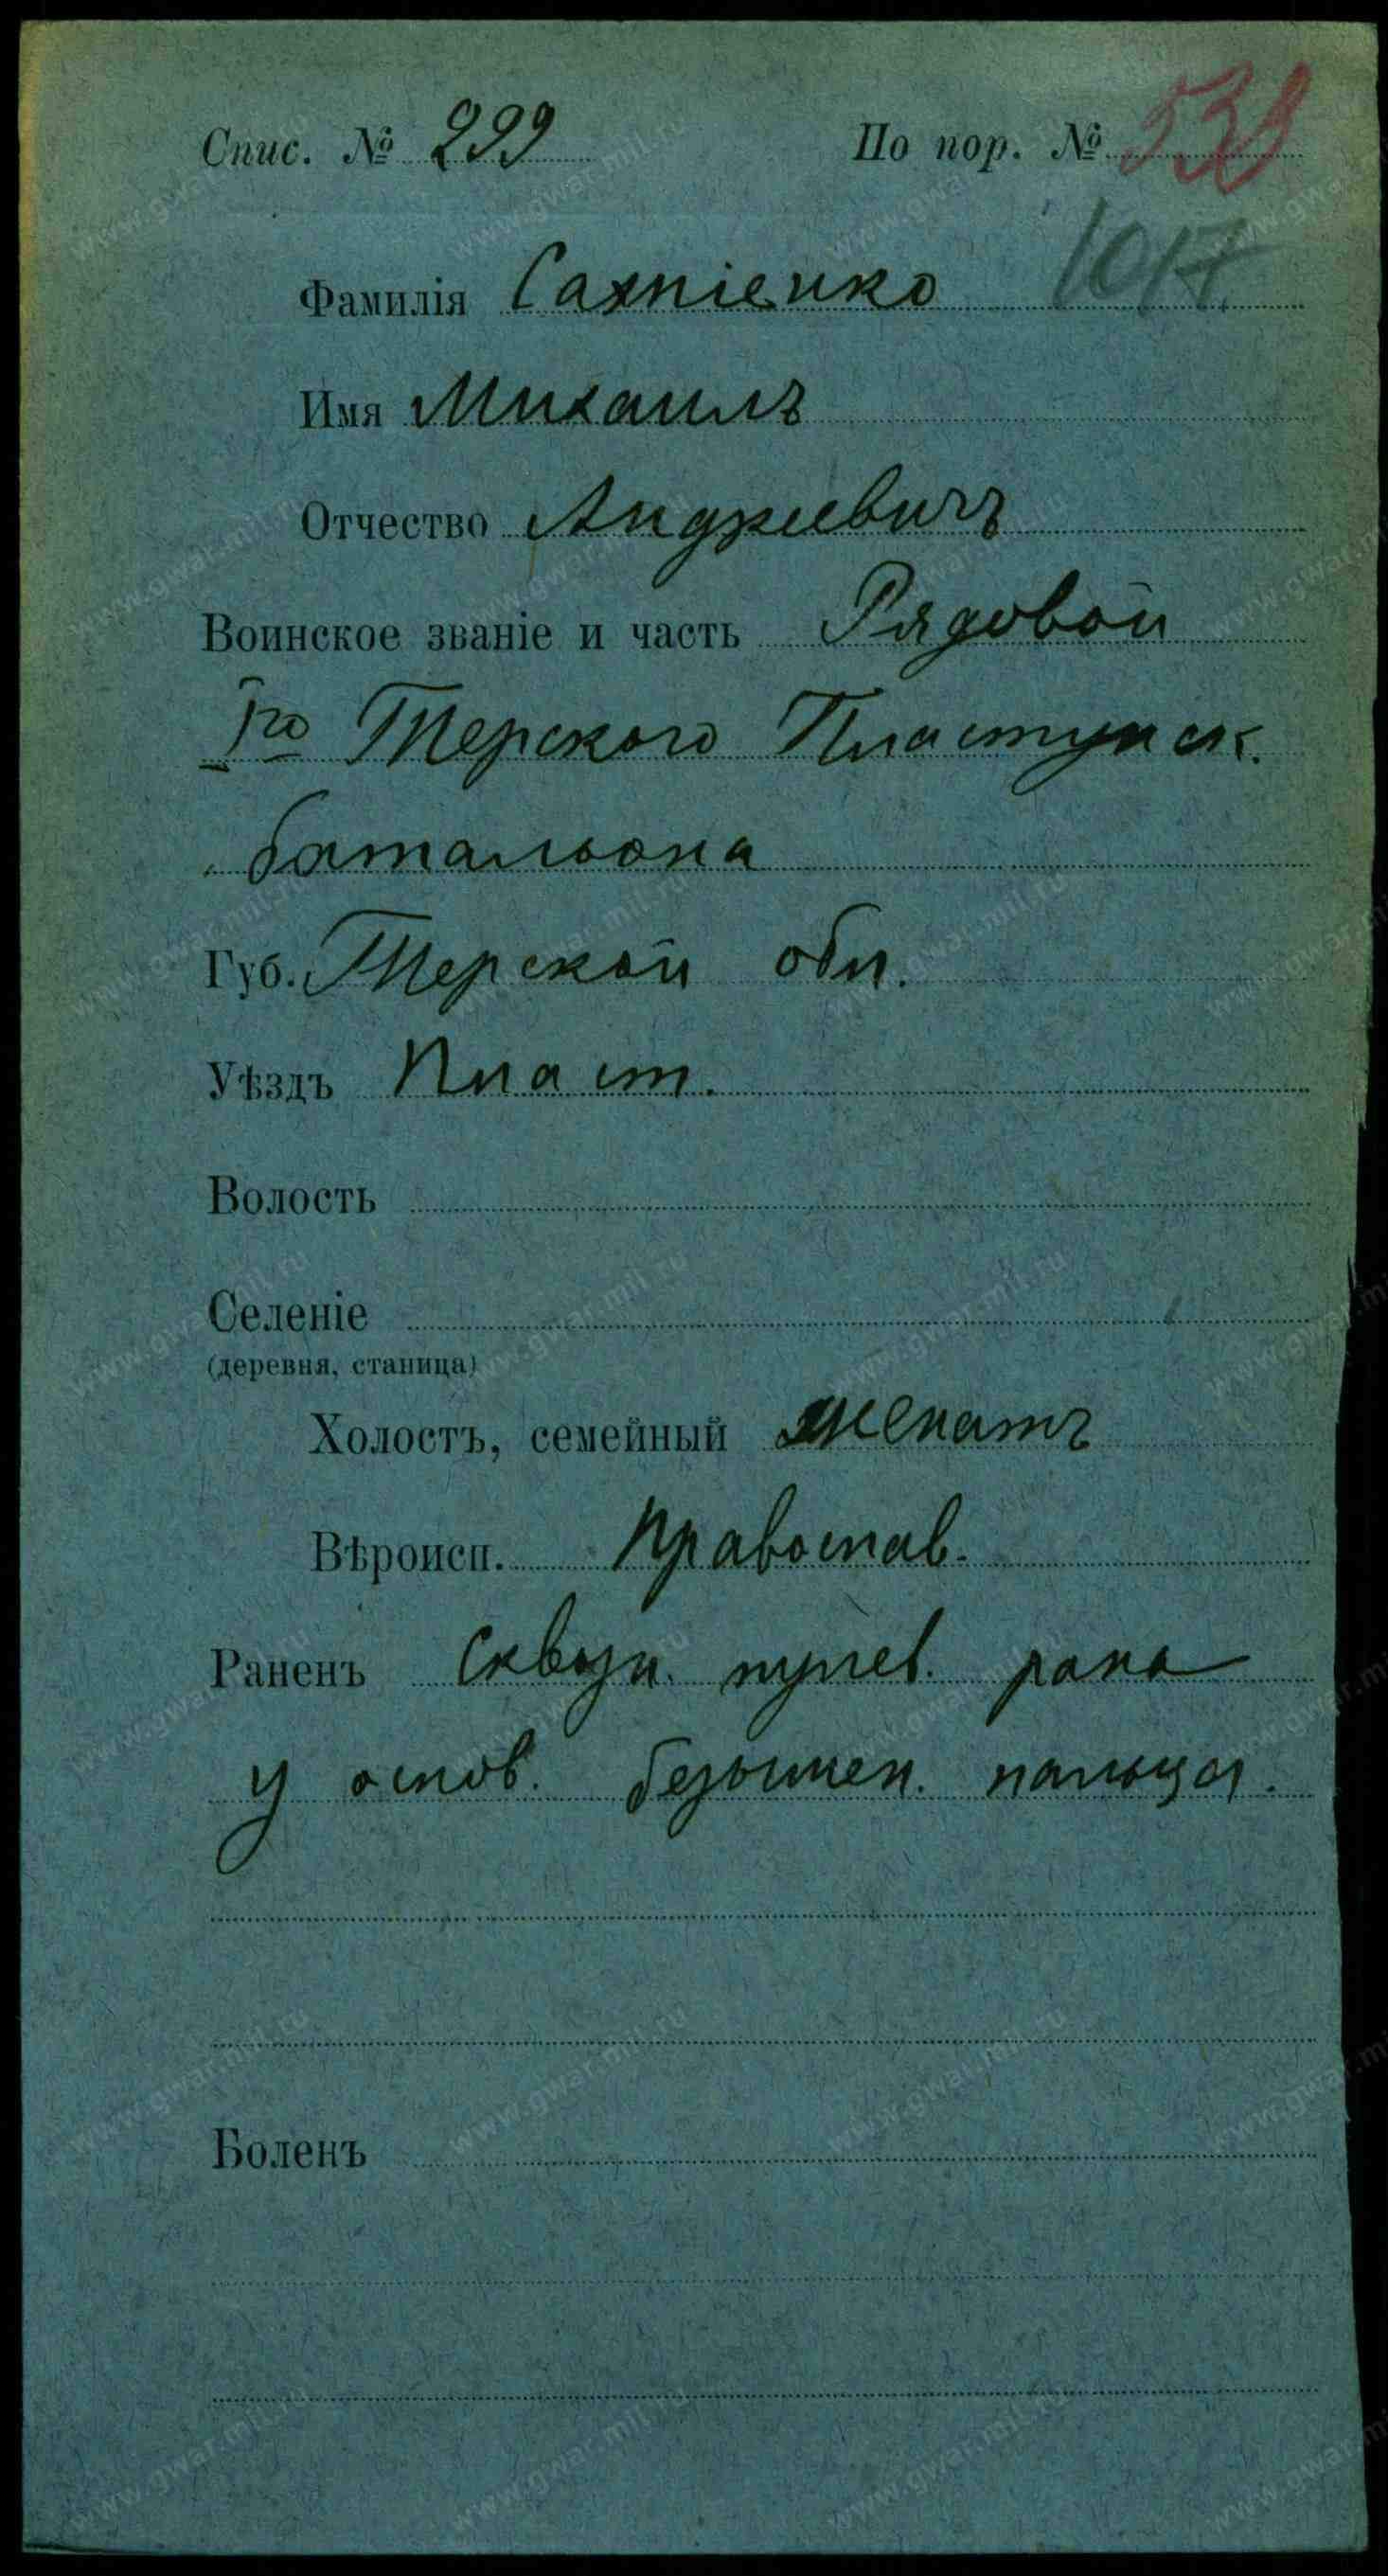 Спис. № 299 По пор. № 538
1017
Фамилія Сахніенко
Имя Михаилъ
Отчество Андреевичъ
Воинское званіе и часть Рядовой
1го Терского Пластунск.
батальона
Губ. Терской обл.
Уѣздъ Пласт.
Волость
Селеніе
(деревня, станица)
Холостъ, семейный женатъ
Вѣроисп. Православ.
Раненъ Сквозн. пулев. рана
у основ. безымен. пальца.
Боленъ